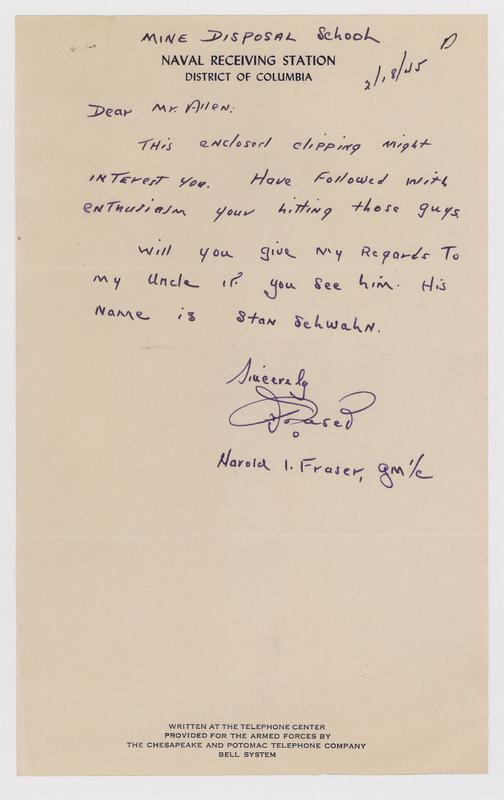 MINE DISPOSAL School
NAVAL RECEIVING STATION
DISTRICT OF COLUMBIA
2/18/45
Dear Mr. Allen:
This enclosed clipping might
interest you. Have Followed with
enthusiasm your hitting those guys.
Will you give my Regards To
my Uncle if you see him. His
Name is Stan Schwahn.
Sincerely
Harold I. Fraser, GM 1/c
WRITTEN AT THE TELEPHONE CENTER
PROVIDED FOR THE ARMED FORCES BY
THE CHESAPEAKE AND POTOMAC TELEPHONE COMPANY
BELL SYSTEM